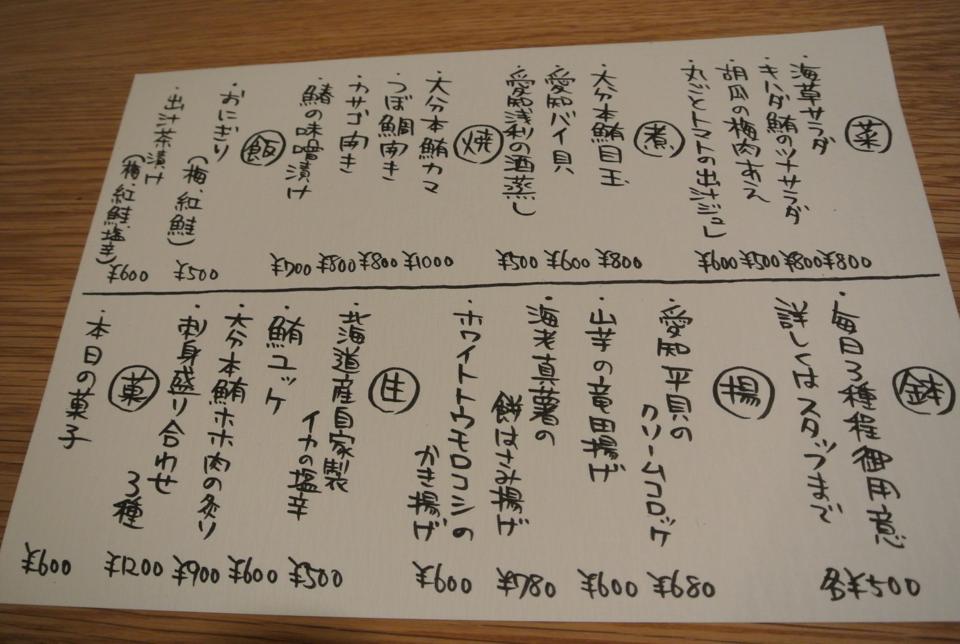 菜
・海草サラダ ¥800
・キハダ鮪のツナサラダ ¥800
・胡瓜の梅肉あえ ¥500
・丸ごとトマトの出汁ジュレ ¥600
煮
・大分本鮪目玉 ¥800
・愛知バイ貝 ¥600
・愛知浅利の酒蒸し ¥500
焼
・大分本鮪カマ ¥1000
・つぼ鯛開き ¥800
・カサゴ開き ¥800
・鰆の味噌漬け ¥700
飯
・おにぎり
(梅、紅鮭) ¥500
・出汁茶漬け
(梅、紅鮭、塩辛) ¥600
鉢
・毎日3種程御用意
詳しくはスタッフまで
各¥500
揚
・愛知平貝の
クリームコロッケ ¥680
・山芋の竜田揚げ ¥600
・海老真薯の
餅はさみ揚げ ¥780
・ホワイトトウモロコシの
かき揚げ ¥600
生
・北海道産自家製
イカの塩辛 ¥500
・鮪ユッケ ¥600
・大分本鮪ホホ肉の炙り ¥900
・刺身盛り合わせ
3種 ¥1200
菓
・本日の菓子 ¥600